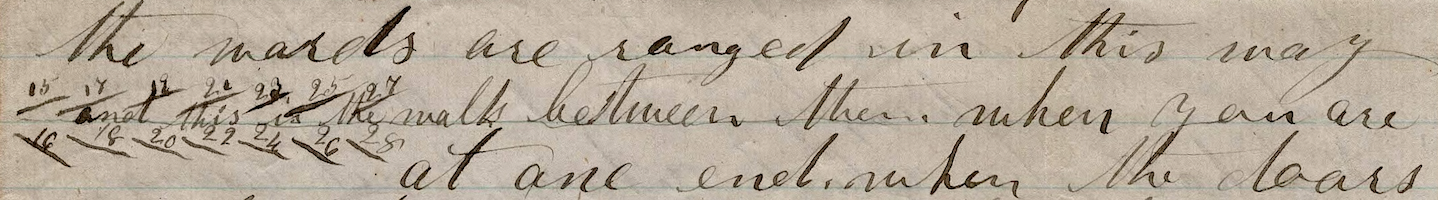 the wards are ranged in this way
15 17 19 21 23 25 27
and this is the walk between them when you are
16 18 20 22 24 26 28
at one end. when the doors